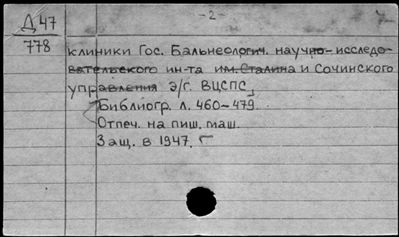 Д 47
778
-2-
клиники Гос. Бальнеологич. научно-исследо-
вательского ин-та им. Сталина и Сочинского
управления Э/г. ВЦСПС,
Библиогр. л. 460-479.
Отпеч. на пиш. маш.
Защ. в 1947. Г